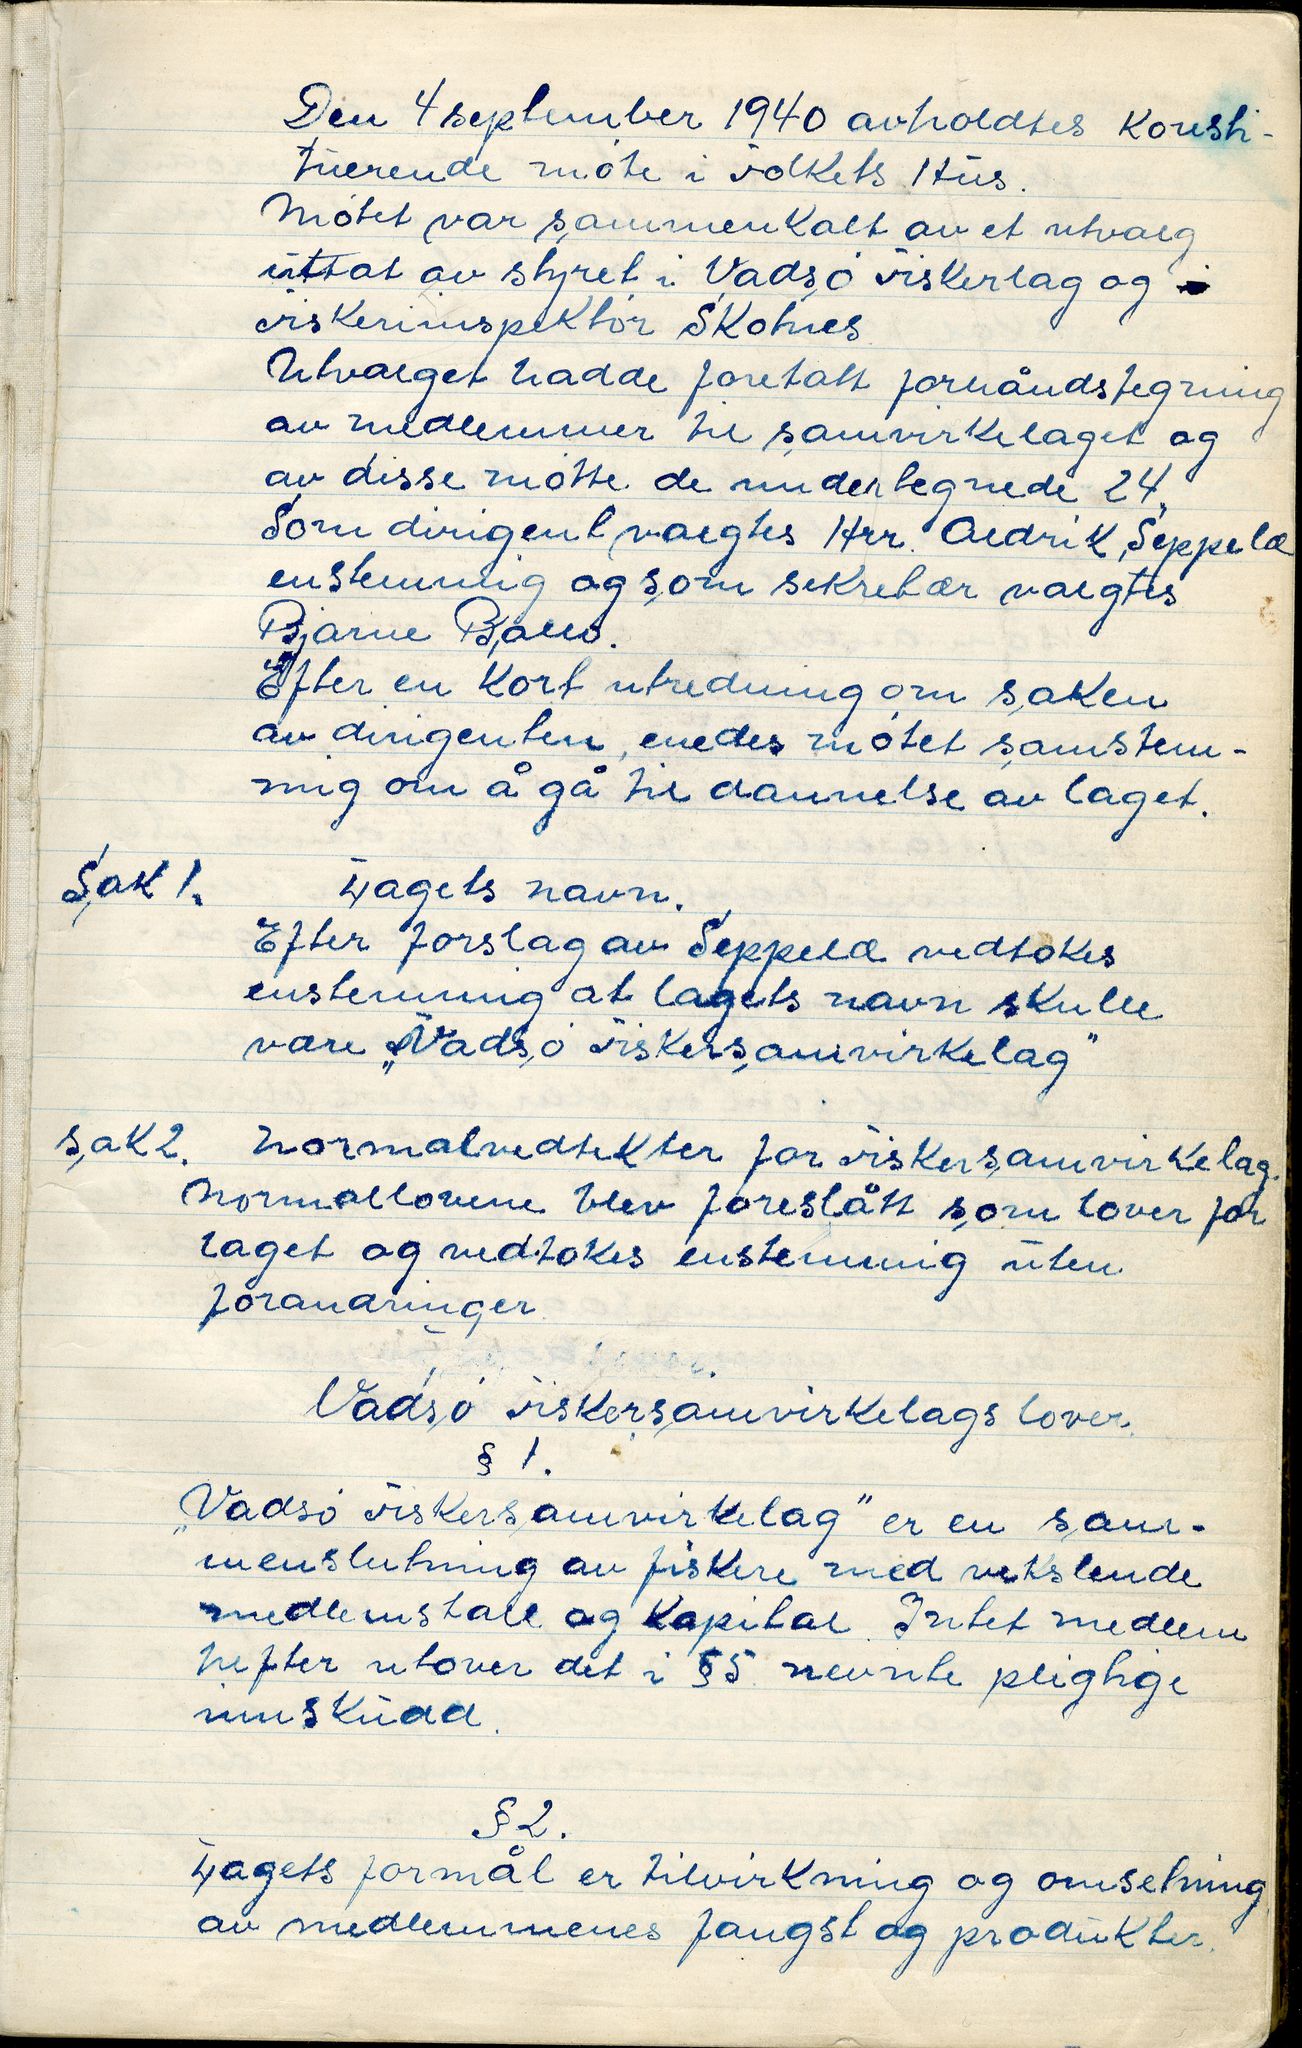 Den 4 september 1940 avholdtes Konsti-
tuerende møte i Folkets Hus.
Møtet var sammenkalt av et utvalg
uttat av styret i Vadsø Fiskerlag og
Fiskeriinspektør Skotnes
Utvalget hadde foretatt forhåndstegning
av medlemmer til samvirkelaget og
av disse møtte de undertegnede 24.
Som dirigent valgtes Hrr. Aldrik Seppola
enstemmig og som sekretær valgtes
Bjarne
Efter en kort utredning om saken
av dirigenten, enedes møtet samstem-
mig om å gå til dannelse av laget.
Sak 1. Lagets navn.
Efter forslag av Seppola vedtokes
enstemmig at lagets navn skulle
være „Vadsø Fiskersamvirkelag"
Sak 2. Normalvedtekter for Fiskersamvirkelag.
Normallovene blev foreslått som lover for
laget og vedtokes enstemmig uten
forandringer
Vadsø Fiskersamvirkelags lover.
§ 1.
„Vadsø Fiskersamvirkelag" er en sam-
menslutning av fiskere med vekslende
medlemstall og kapital. Intet medlem
hefter utover det i §5 nevnte pligtige
innskudd.
§ 2.
Lagets formål er tilvirkning og omsetning
av medlemmenes fangst og produkter.